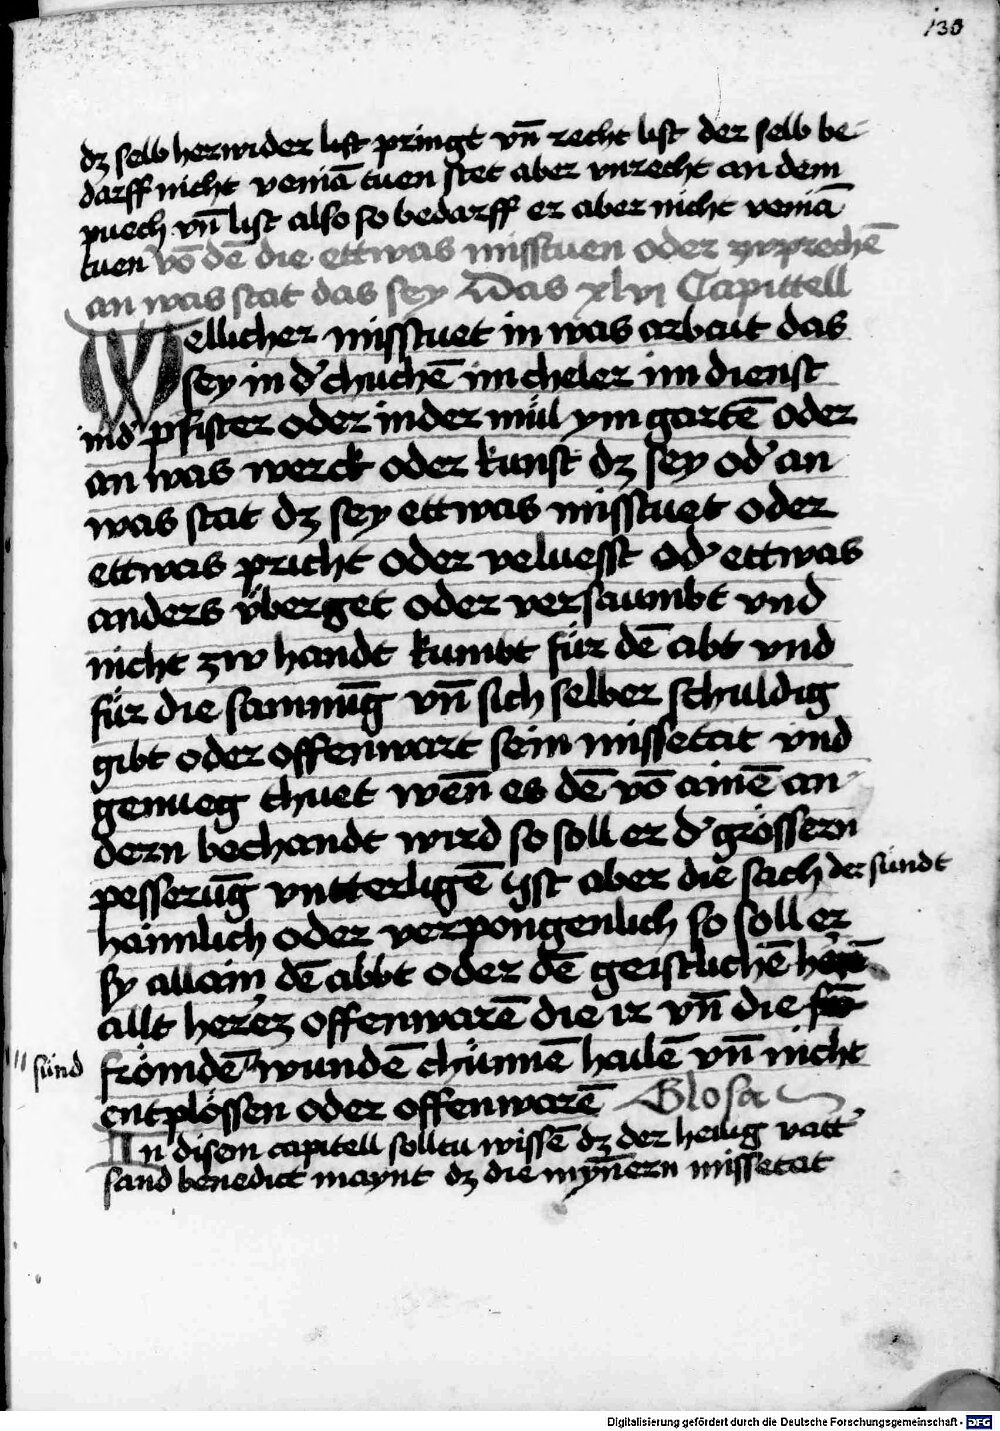 130
dz selb herwider list pringt vn̄ recht list der selb be-
darff nicht veniā tuen stet aber vnrecht an dem
puech vn̄ list also so bedarff er aber nicht veniā
tuen vō dē die ettwas misstuen oder zwprechē
an was stat das sey Das xlvi Capittell
Wellicher misstuet in was arbait das
sey in d' chuchē im cheler im dienst
in d' pfister oder in der mül ym gartē oder
an was werck oder kunst dz sey od' an
was stat dz sey ettwas misstuet oder
ettwas pricht oder veluesst od' ettwas
anders v̈berget oder versaumbt vnd
nicht zw handt kumbt für dē abt vnd
für die samnūg vn̄ sich selber schuldig
gibt oder offenwart sein missetat vnd
genueg thuet wen̄ es dē vō ainē an-
dern bechandt wird so soll er d' grössern
pesserūg vntterligē ÿst aber die sach der sündt
haimlich oder verpongenlich so soll er
sy allain dē abbt oder dē geistlichē
allt herrez offenwarē die ir vn̄ die
sünd
frömdē wundē chünnē hailē vn̄ nicht
entplössen oder offenwarē Glosa
In disem capitell solltu wissē dz der heilig vatt'
sand benedict maynt dz die myn̄ern missetat
Digitalisierung gefördert durch die Deutsche Forschungsgemeinschaft - DFG